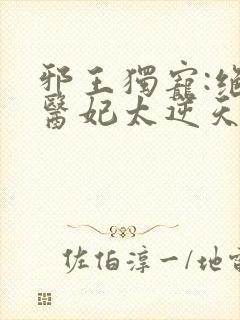 邪王獨寵:絕
醫妃太逆天
佐伯淳一/地雷